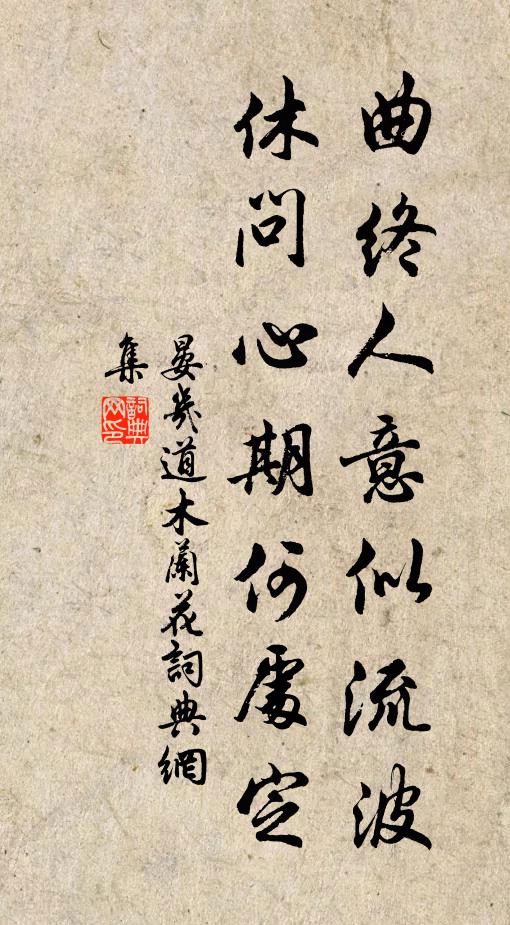 曲终人意似流波
休问心期何處定
晏幾道木蘭花詞典網
集
詞典网印